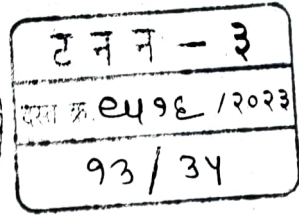 ट न न - ३
दस्त क्र. ९५१६ /२०२३
१३ / ३५